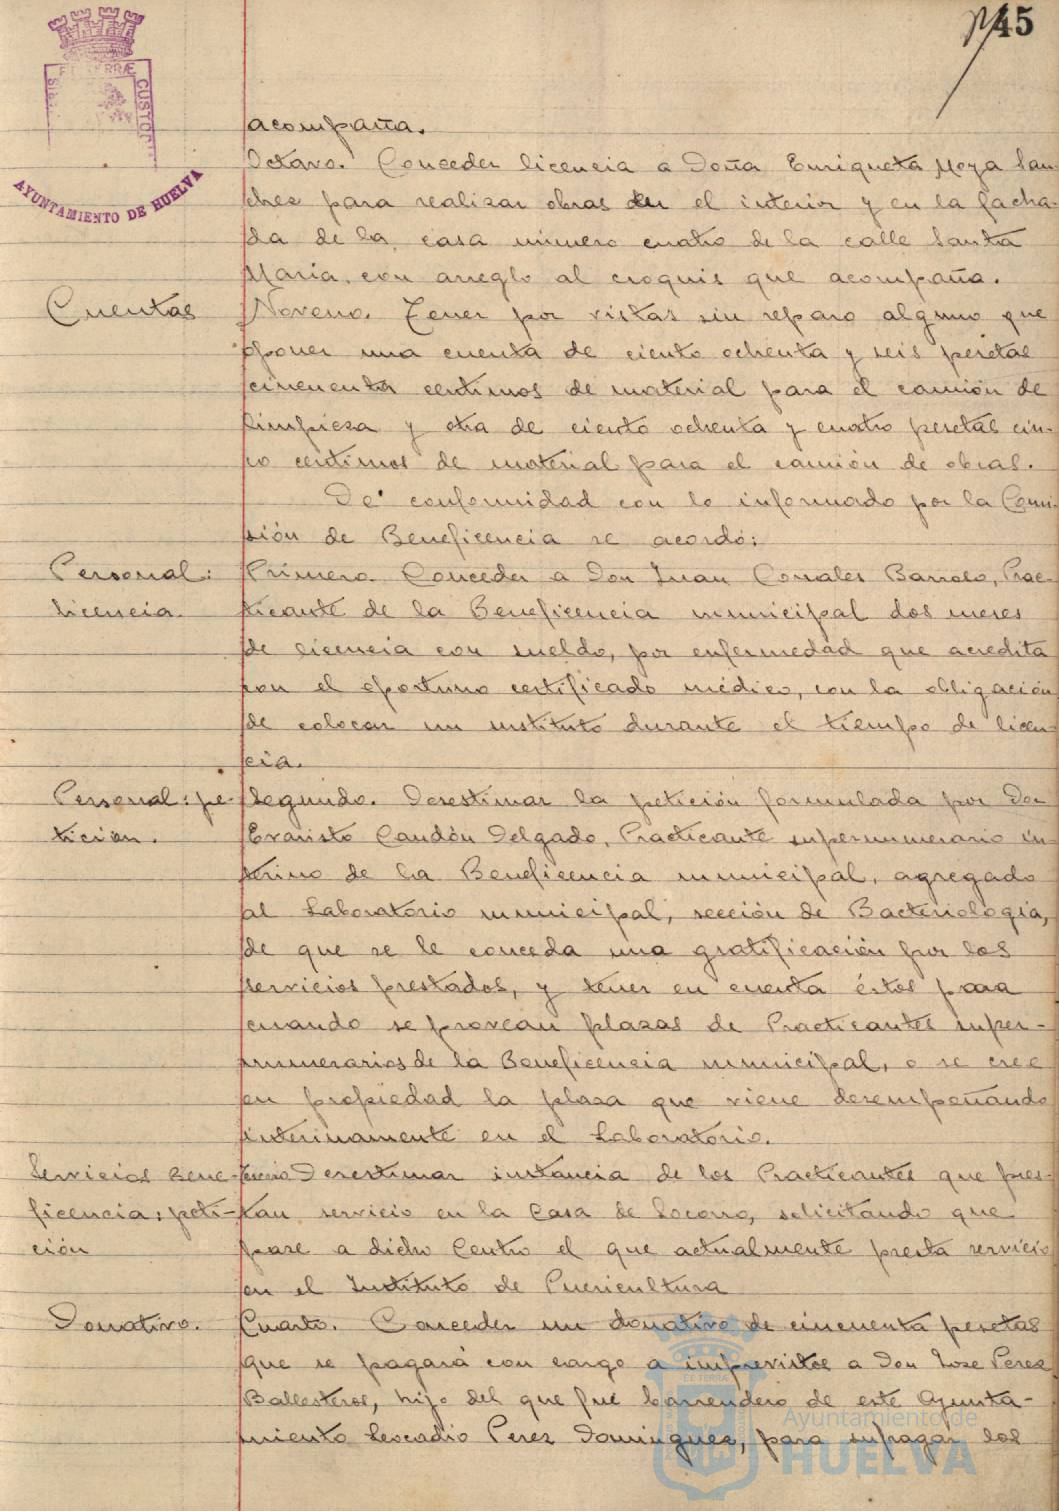 45
AYUNTAMIENTO DE HUELVA
acompaña.
Octavo. Conceder licencia a Doña Enriqueta Moya San-
chez para realizar obras en el interior y en la facha-
da de la casa número cuatro de la calle Santa
María, con arreglo al croquis que acompaña.
Cuentas
Noveno. Tener por vistas sin reparo alguno que
oponer una cuenta de ciento ochenta y seis pesetas
cincuenta centimos de material para el camión de
limpieza y otra de ciento ochenta y cuatro pesetas cin-
co centimos de material para el camión de obras.
De conformidad con lo informado por la Comi-
sión de Beneficencia se acordó:
Personal:
licencia.
Primero. Conceder a Don Juan Corrales Barroso, Prac-
ticante de la Beneficencia municipal dos meses
de licencia con sueldo, por enfermedad que acredita
con el oportuno certificado médico, con la obligación
de colocar un sustituto durante el tiempo de licen-
cia.
Personal: pe-
tición.
Segundo. Desestimar la petición formulada por Don
Evaristo Candón Delgado, Practicante supernumerario in-
terino de la Beneficencia municipal, agregado
al Laboratorio municipal, sección de Bacteriología,
de que se le conceda una gratificación por los
servicios prestados, y tener en cuenta éstos para
cuando se provean plazas de Practicantes super-
numerarios de la Beneficencia municipal, o se cree
en propiedad la plaza que viene desempeñando
interinamente en el Laboratorio.
Servicios Bene-
ficencia: peti-
ción
Tercero Desestimar instancia de los Practicantes que pres-
tan servicio en la Casa de Socorro, solicitando que
pase a dicho Centro el que actualmente presta servicio
en el Instituto de Puericultura
Donativo.
Cuarto. Conceder un donativo de cincuenta pesetas
que se pagará con cargo a imprevistos a Don Jose Perez
Ballesteros, hijo del que fué barrendero de este Ayunta-
miento Leocadio Perez Dominguez, para sufragar los
Ayuntamiento de
HUELVA